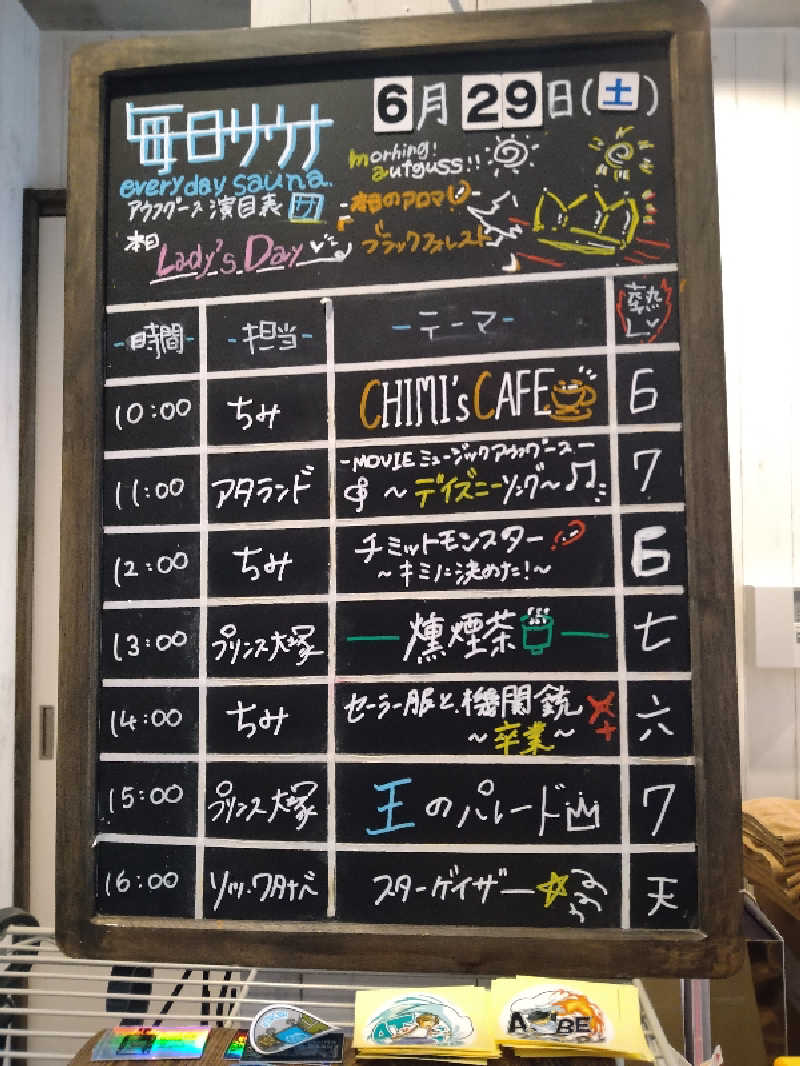 6月29日(土)
毎日サウナ
everyday sauna.
アウフグース演目表
本日 Lady's Day
morning!
aufguss!!
本日のアロマ!
ブラックフォレスト
-時間- -担当- -テーマ- 熱
10:00 ちみ CHIMI's CAFE 6
11:00 アタランド -MOVIE ミュージックアウフグース-
~ディズニーソング~ 7
12:00 ちみ チミットモンスター
~キミに決めた!~ 6
13:00 プリンス大塚 燻煙茶 七
14:00 ちみ セーラー服と機関銃
~卒業~ 六
15:00 プリンス大塚 王のパレード 7
16:00 ソッソ・ワタナベ スターゲイザー 天